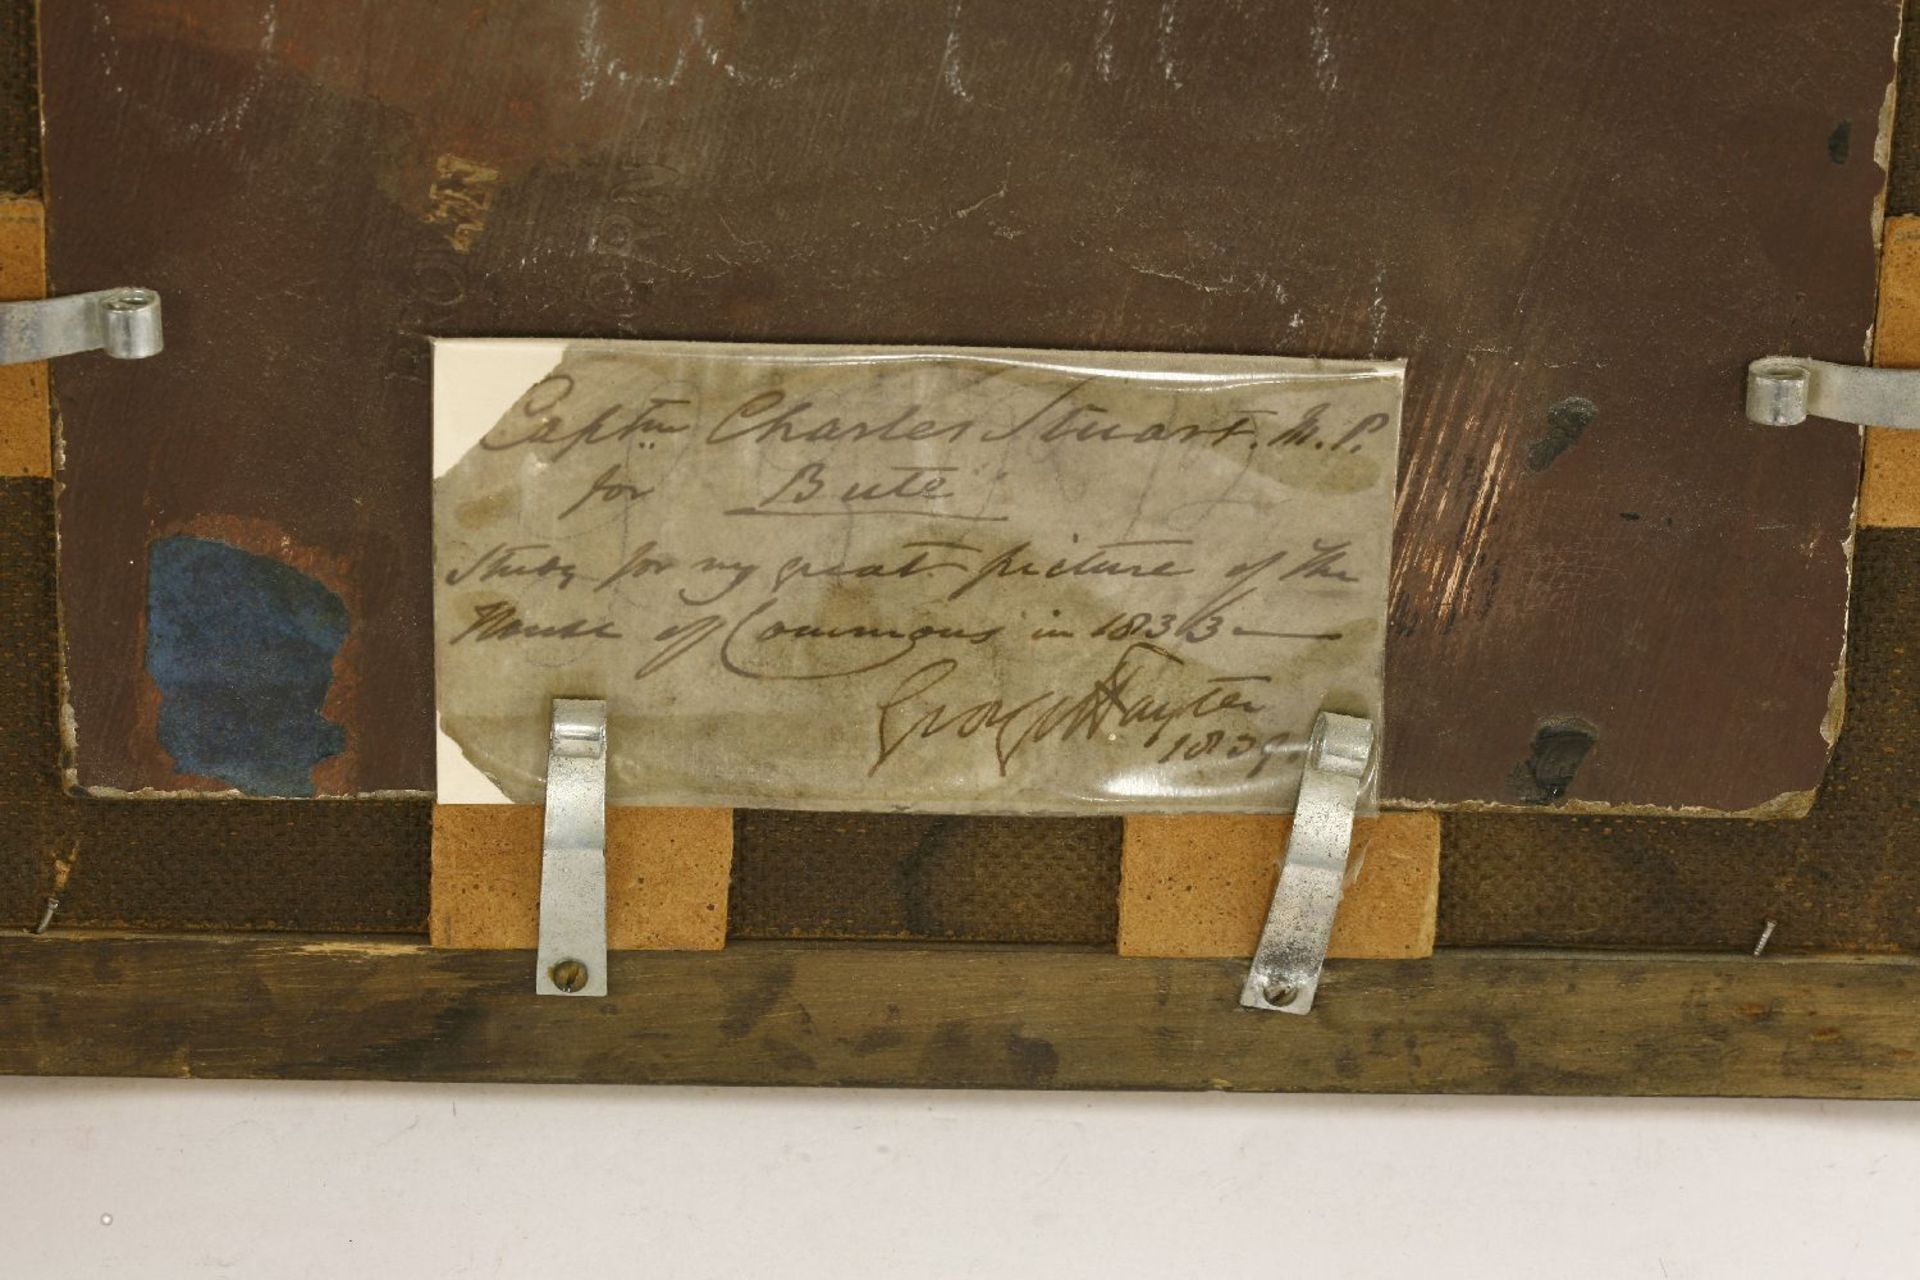 Captn Charles Stuart. M.P.
for Bute
Study for my great picture of the
House of Commons in 1833 —
George Hayter
1839.